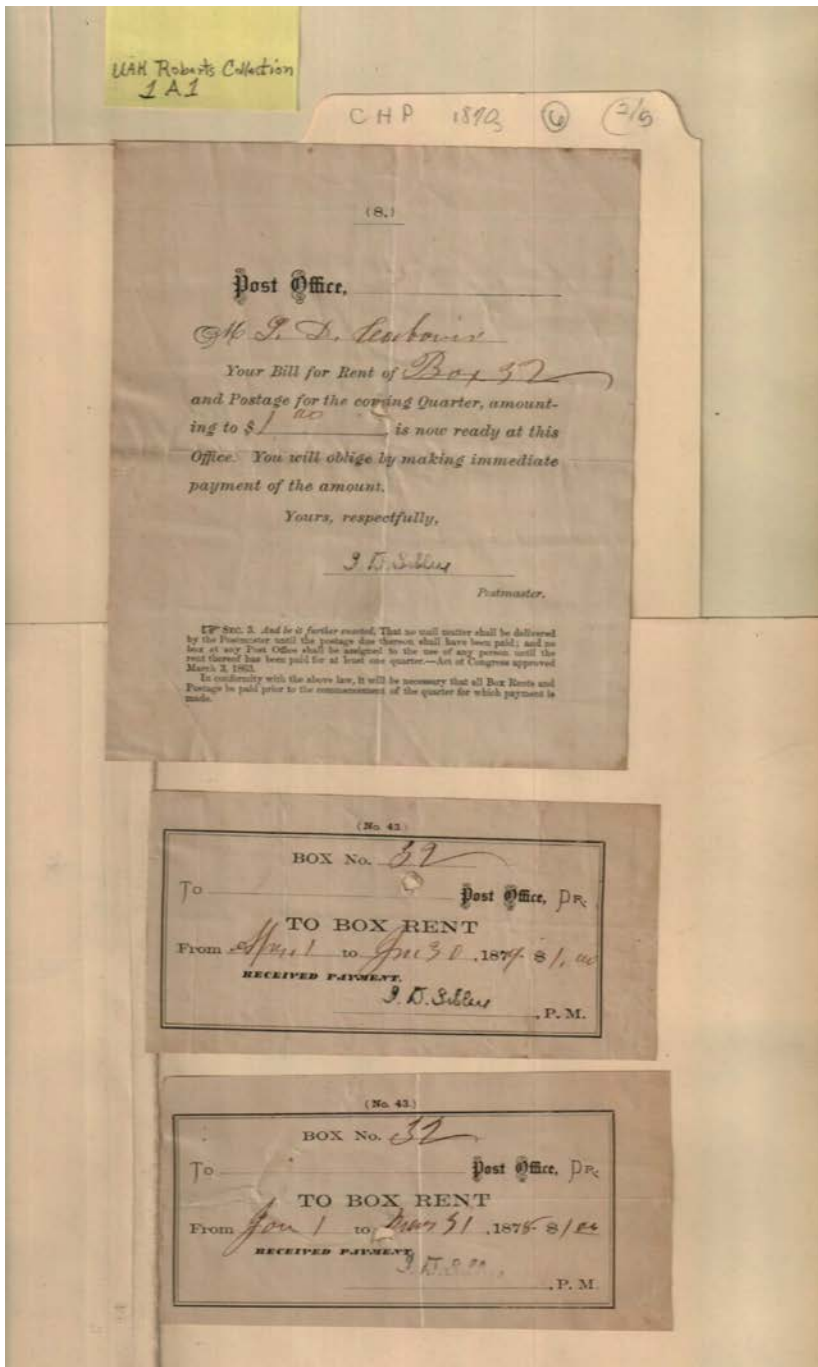 UAH Roberts Collection
1 A 1
CHP 187 6
(8.)
Post Office,
M
Your Bill for Rent of Box 32
and Postage for the coming Quarter, amount-
ing to $ 1 00 is now ready at this
Office. You will oblige by making immediate
payment of the amount.
Yours, respectfully,
Postmaster.
☞ SEC. 3. And be it further enacted, That no mail matter shall be delivered
by the Postmaster until the postage due thereon shall have been paid; and no
box at any Post Office shall be assigned to the use of any person until the
rent thereof has been paid for at least one quarter.—Act of Congress approved
March 3, 1863.
In conformity with the above law, it will be necessary that all Box Rents and
Postage be paid prior to the commencement of the quarter for which payment is
made.
(No. 43.)
BOX No. 32
To Post Office, DR.
TO BOX RENT
From 1 to 30, 187 $1,00
RECEIVED PAYMENT,
P. M.
(No. 43.)
BOX No. 32
To Post Office, DR.
TO BOX RENT
From Jan 1 to Mar 31, 187 $1 00
RECEIVED PAYMENT,
P. M.